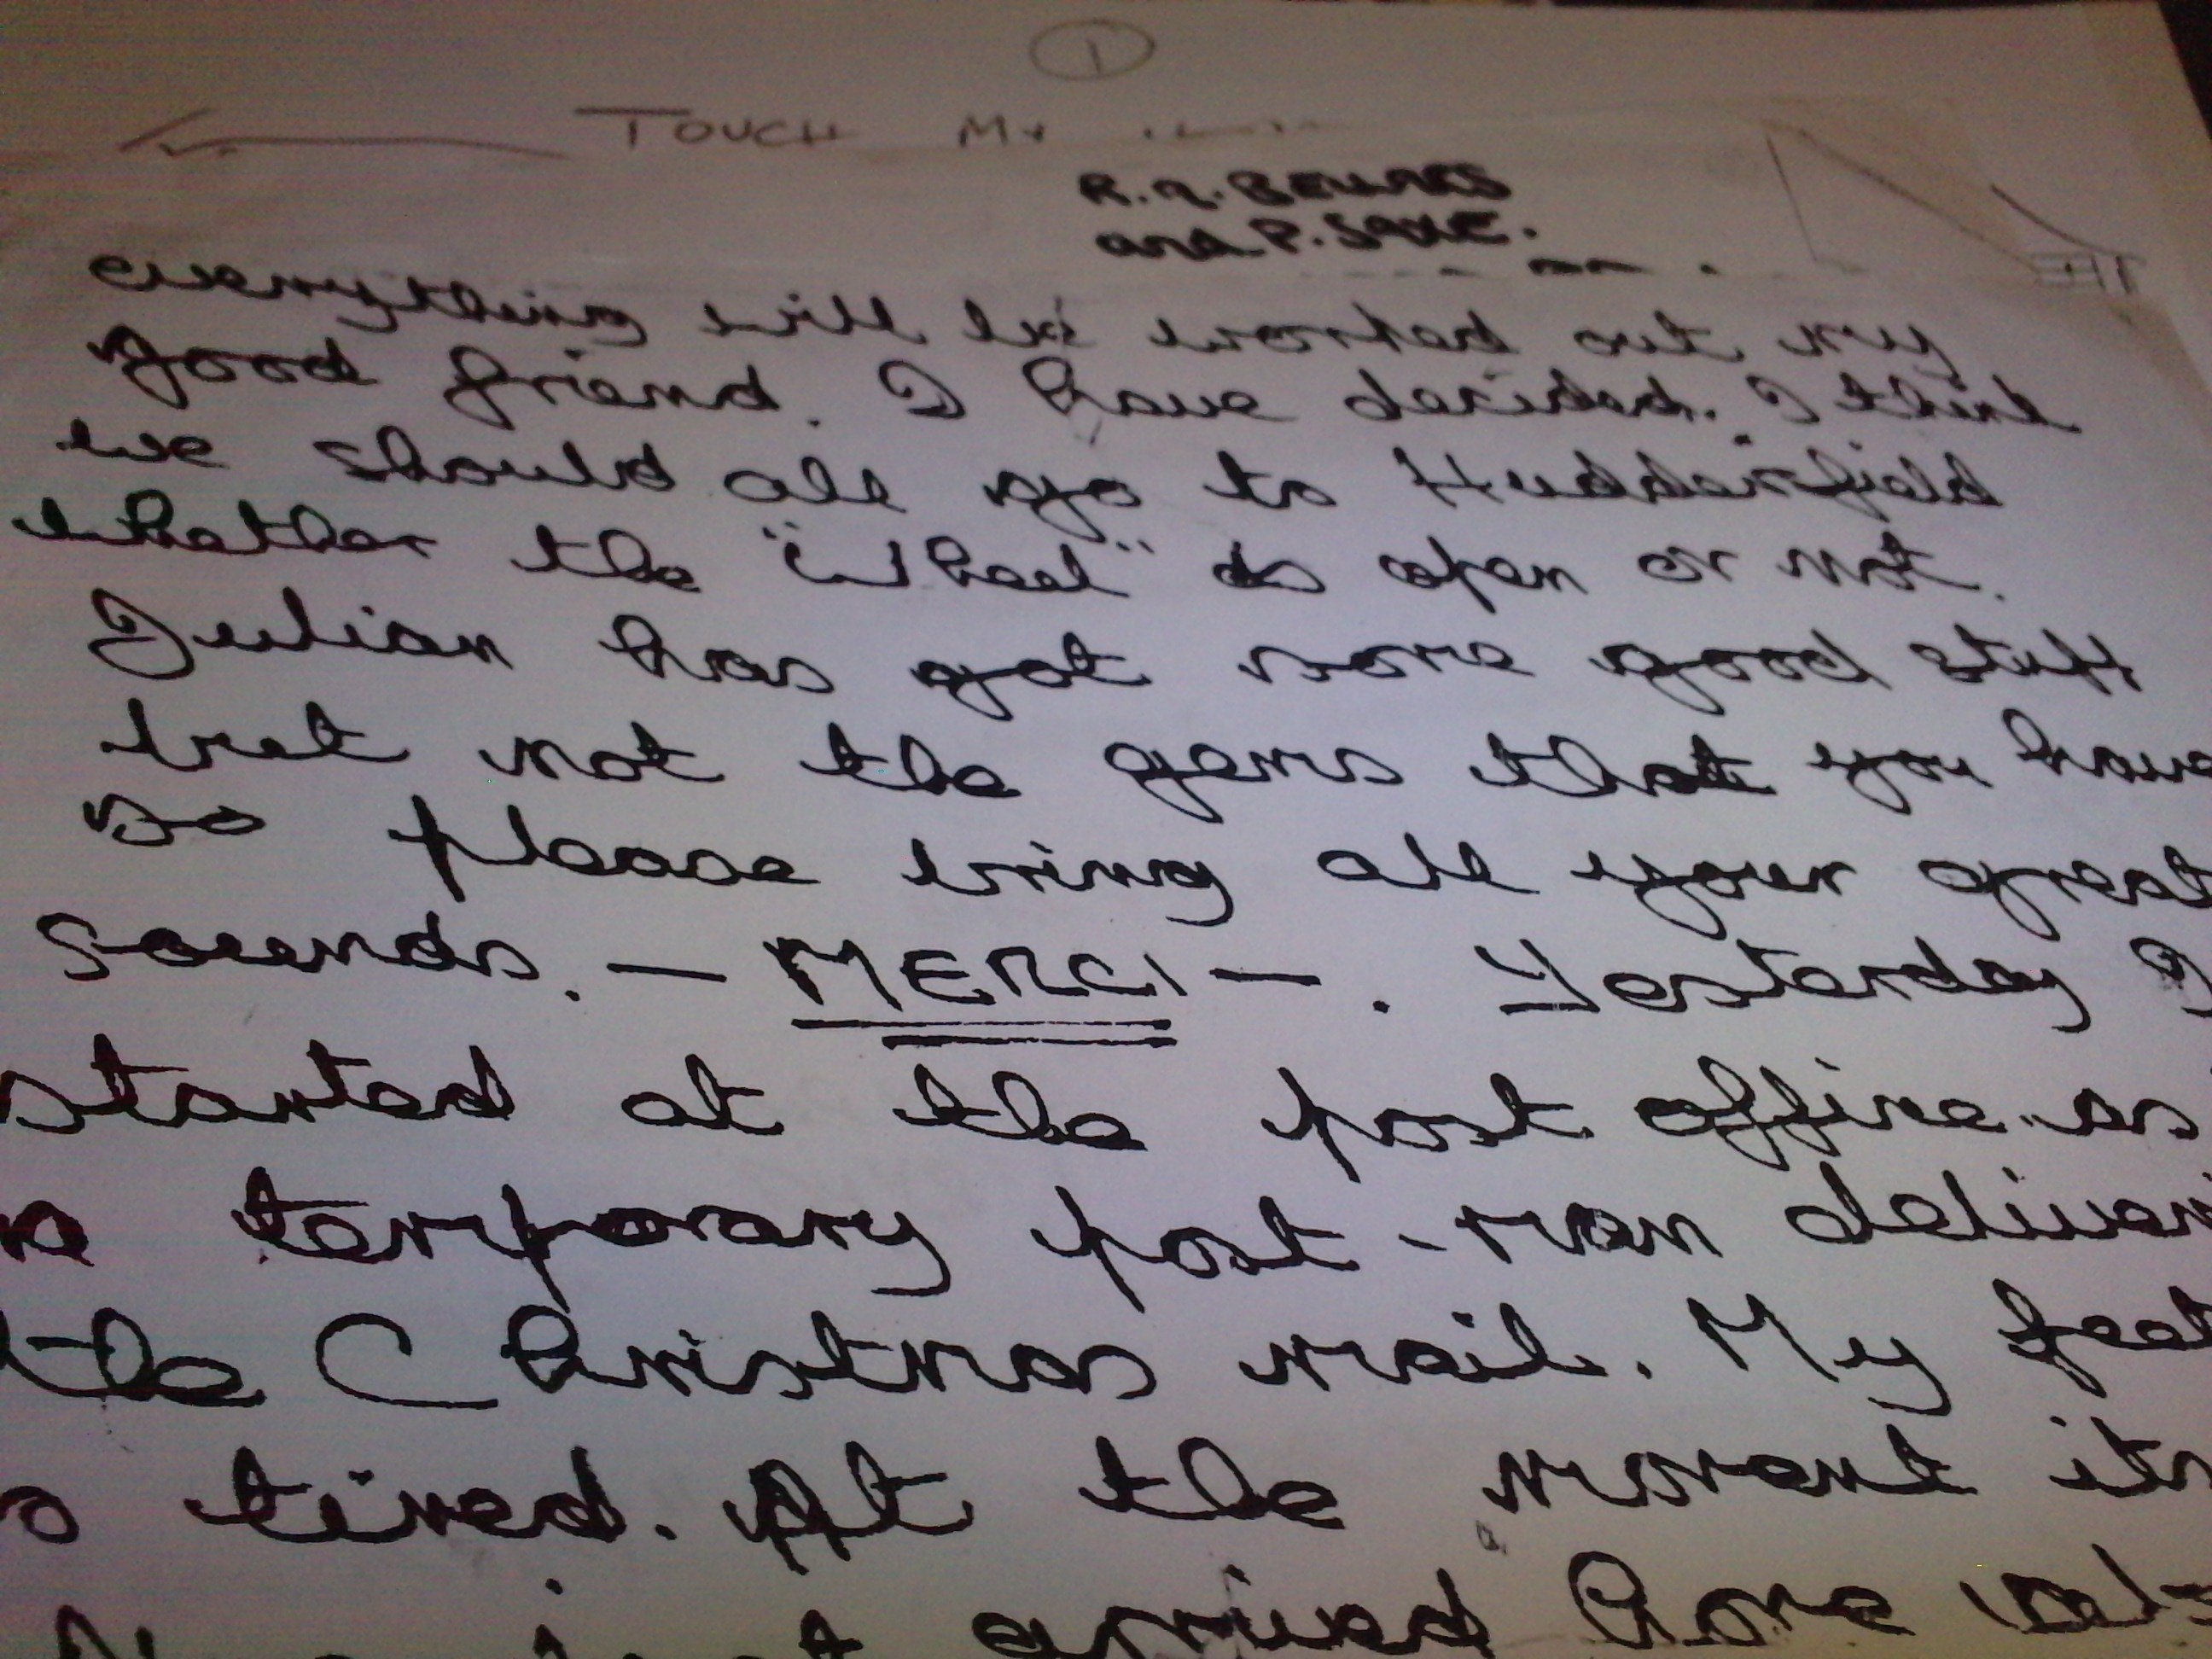 1
TOUCH
and P.
everything will be worked out my
good friend. I have decided. I think
we should all go to Huddersfield
whether the "Wheel" is open or not.
Julian has got some good stuff
but not the gems that you have
so please bring all your great
sounds. — MERCI —. Yesterday I
started at the post office as
a temporary post-man
the Christmas mail. My feet
tired. At the moment its
arrived home